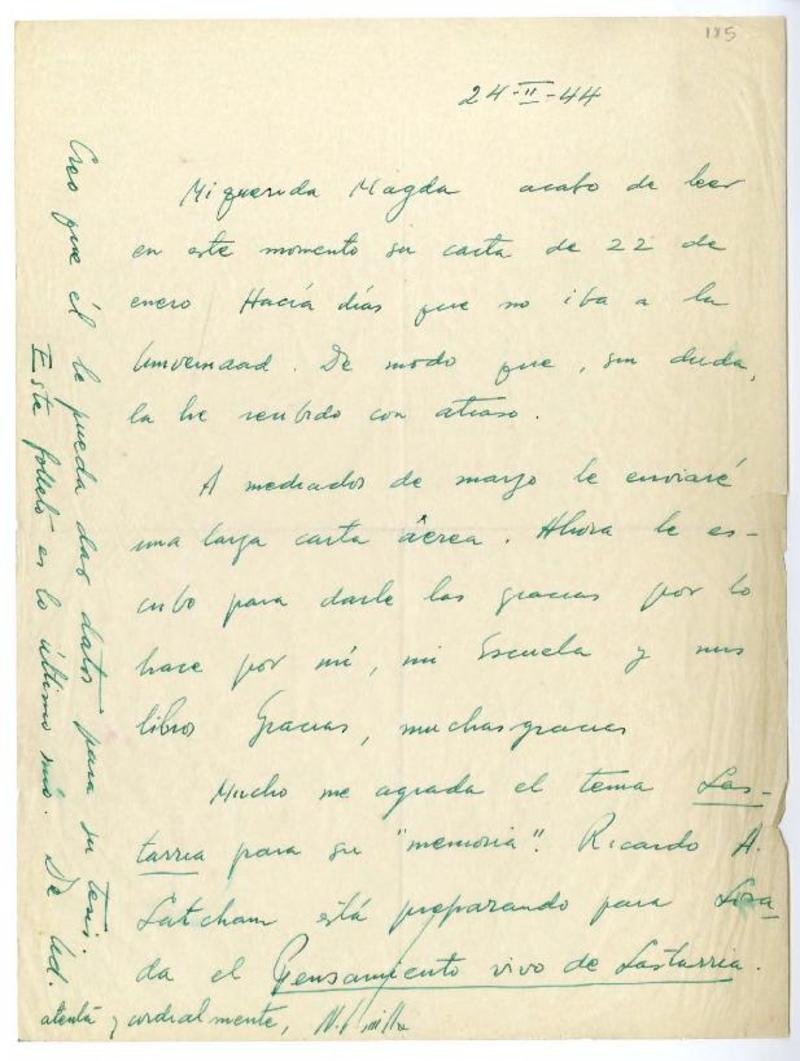 185
24-II-44
Mi querida Magda acabo de leer
en este momento su carta de 22 de
enero Hacía días que no iba a la
Universidad. De modo que, sin duda,
la he recibido con atraso.
A mediados de marzo le enviaré
una larga carta aérea. Ahora le es-
cribo para darle las gracias por lo
hace por mí, mi Escuela y mis
libros Gracias, muchas gracias
Mucho me agrada el tema Las-
tarria para su "memoria". Ricardo A.
Latcham está preparando para Losa-
da el Pensamiento vivo de Lastarria.
Creo que él le pueda dar datos para su tesis.
Este folleto es lo último mío. De Ud.
atenta y cordialmente,